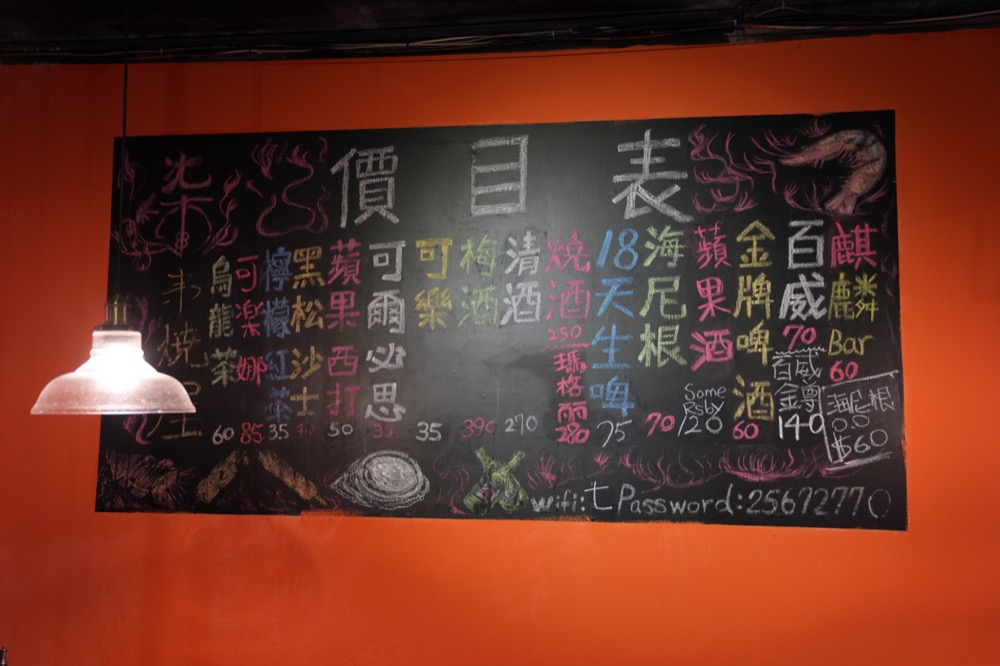 價目表
麒麟 Bar 60
海尼根 0.0 $60
百威 70
百威金鑽 140
金牌啤酒 60
蘋果酒 Somersby 120
海尼根 70
18天生啤 95
燒酒 250
瑪格麗 280
清酒 270
梅酒 390
可樂 35
可爾必思 35
蘋果西打 50
黑松沙士 40
檸檬紅茶 35
可樂娜 85
烏龍茶 60
燒
wifi: t Password: 25672770